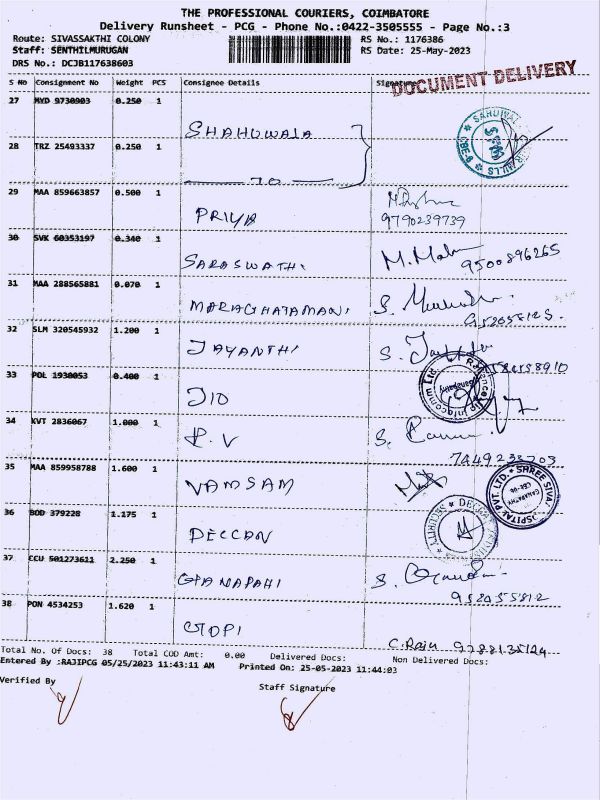 THE PROFESSIONAL COURIERS, COIMBATORE
Delivery Runsheet - PCG - Phone No.:0422-3505555 - Page No.:3
Route: SIVASSAKTHI COLONY RS No.: 1176386
Staff: SENTHILMURUGAN RS Date: 25-May-2023
DRS No.: DCJB117638603
S No Consignment No Weight PCS Consignee Details Signature
DOCUMENT DELIVERY
27 MYD 9730903 0.250 1
SHAHUWALA
28 TRZ 25493337 0.250 1
29 MAA 859663857 0.500 1
PRIYA 9790239739
30 SVK 60353197 0.340 1
SARASWATHI M. 9500896265
31 MAA 288565881 0.070 1
MARAGHATAMANI S.
32 SLM 320545932 1.200 1
JAYANTHI S.
33 POL 1930053 0.400 1
JIO
34 KVT 2836067 1.000 1
R.V S. 7449233703
35 MAA 859958788 1.600 1
VAMSAM
SHREE SIVA
PVT. LTD.
36 BOD 379228 1.175 1
DECCAN
37 CCU 501273611 2.250 1
GANAPAHI S.
38 PON 4534253 1.620 1
GOPI C. Raju 9788135124
Total No. Of Docs: 38 Total COD Amt: 0.00 Delivered Docs: Non Delivered Docs:
Entered By :RAJIPCG 05/25/2023 11:43:11 AM Printed On: 25-05-2023 11:44:03
Verified By Staff Signature